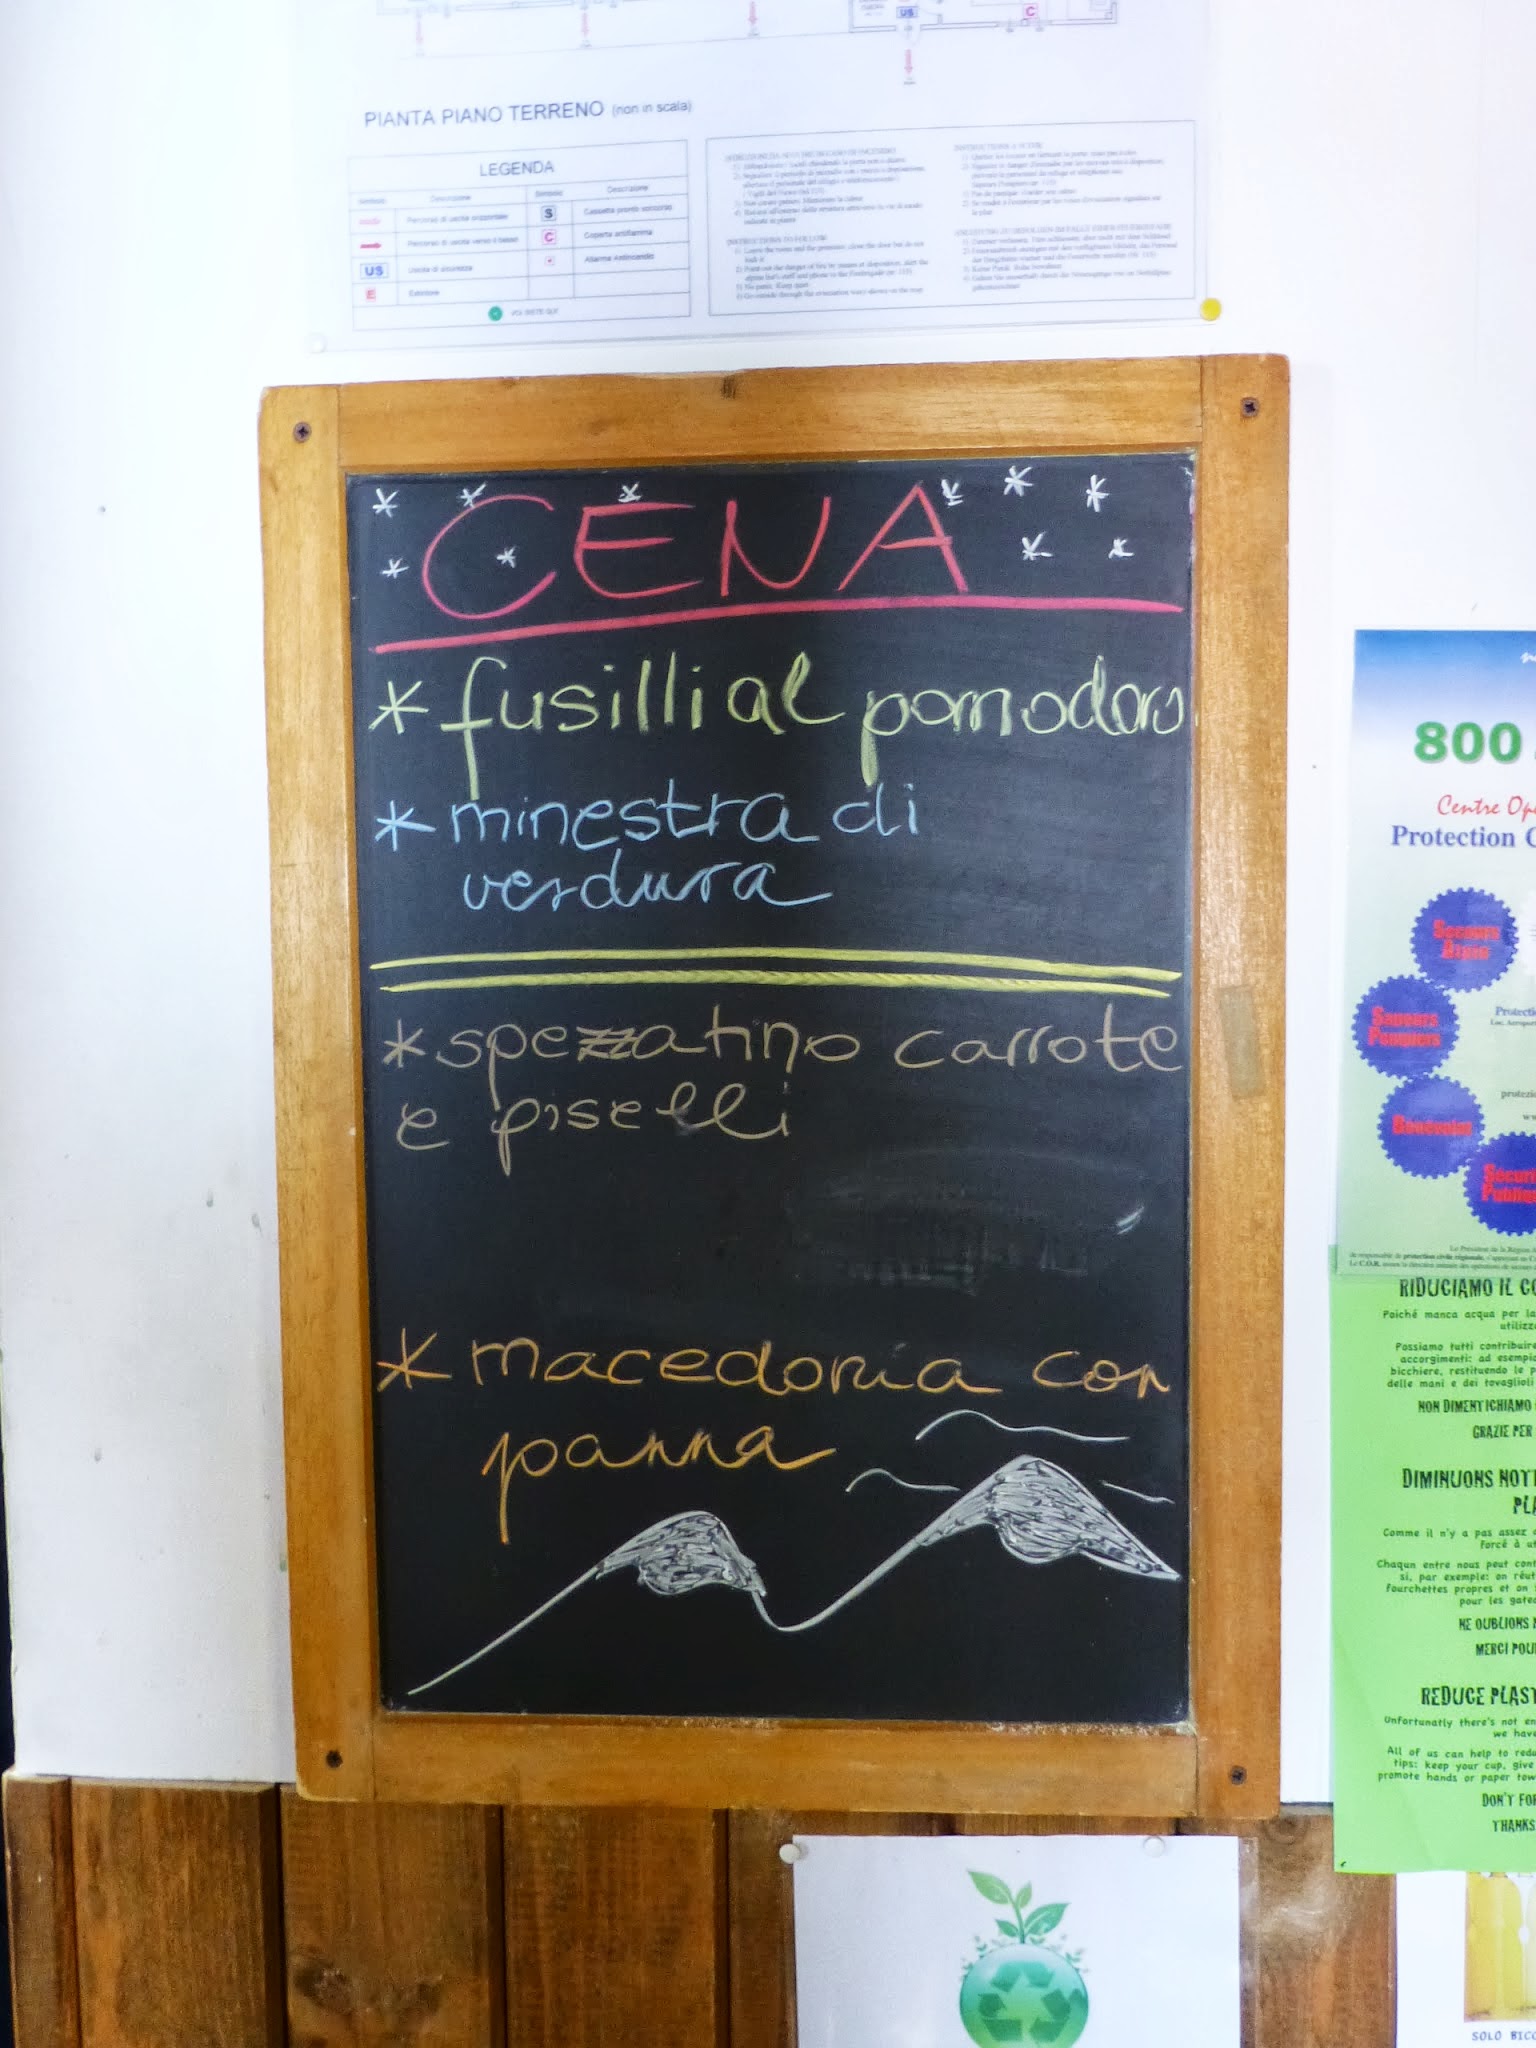 US
C
PIANTA PIANO TERRENO (non in scala)
LEGENDA
Descrizione
Simbolo
Descrizione
Percorso di uscita orizzontale
S
Cassetta pronto soccorso
Percorso di uscita verso il basso
C
Coperta antifiamma
US
Uscita di sicurezza
Allarme Antincendio
E
Estintore
VOI SIETE QUI
INSTRUCTIONS TO FOLLOW
CENA
* fusilli al pomodoro
* minestra di
verdura
* spezzatino carrote
e piselli
* macedonia con
panna
800
Centre Op
Protection C
Secours
Alpin
Sapeurs
Pompiers
Bénévoles
Sécuri
Publiqu
RIDUCIAMO IL CO
Poiché manca acqua per la
utilizz
Possiamo tutti contribuire
accorgimenti: ad esempio
bicchiere, restituendo le p
delle mani e dei tovaglioli
NON DIMENTICHIAMO
GRAZIE PER
DIMINUONS NOT
PLA
Comme il n'y a pas assez
forcé à ut
Chacun entre nous peut cont
si, par exemple: on réut
fourchettes propres et on
pour les gatea
NE OUBLIONS
MERCI POU
REDUCE PLAST
Unfortunatly there's not en
we have
All of us can help to redu
tips: keep your cup, give
promote hands or paper tow
DON'T FOR
THANKS
SOLO BICC